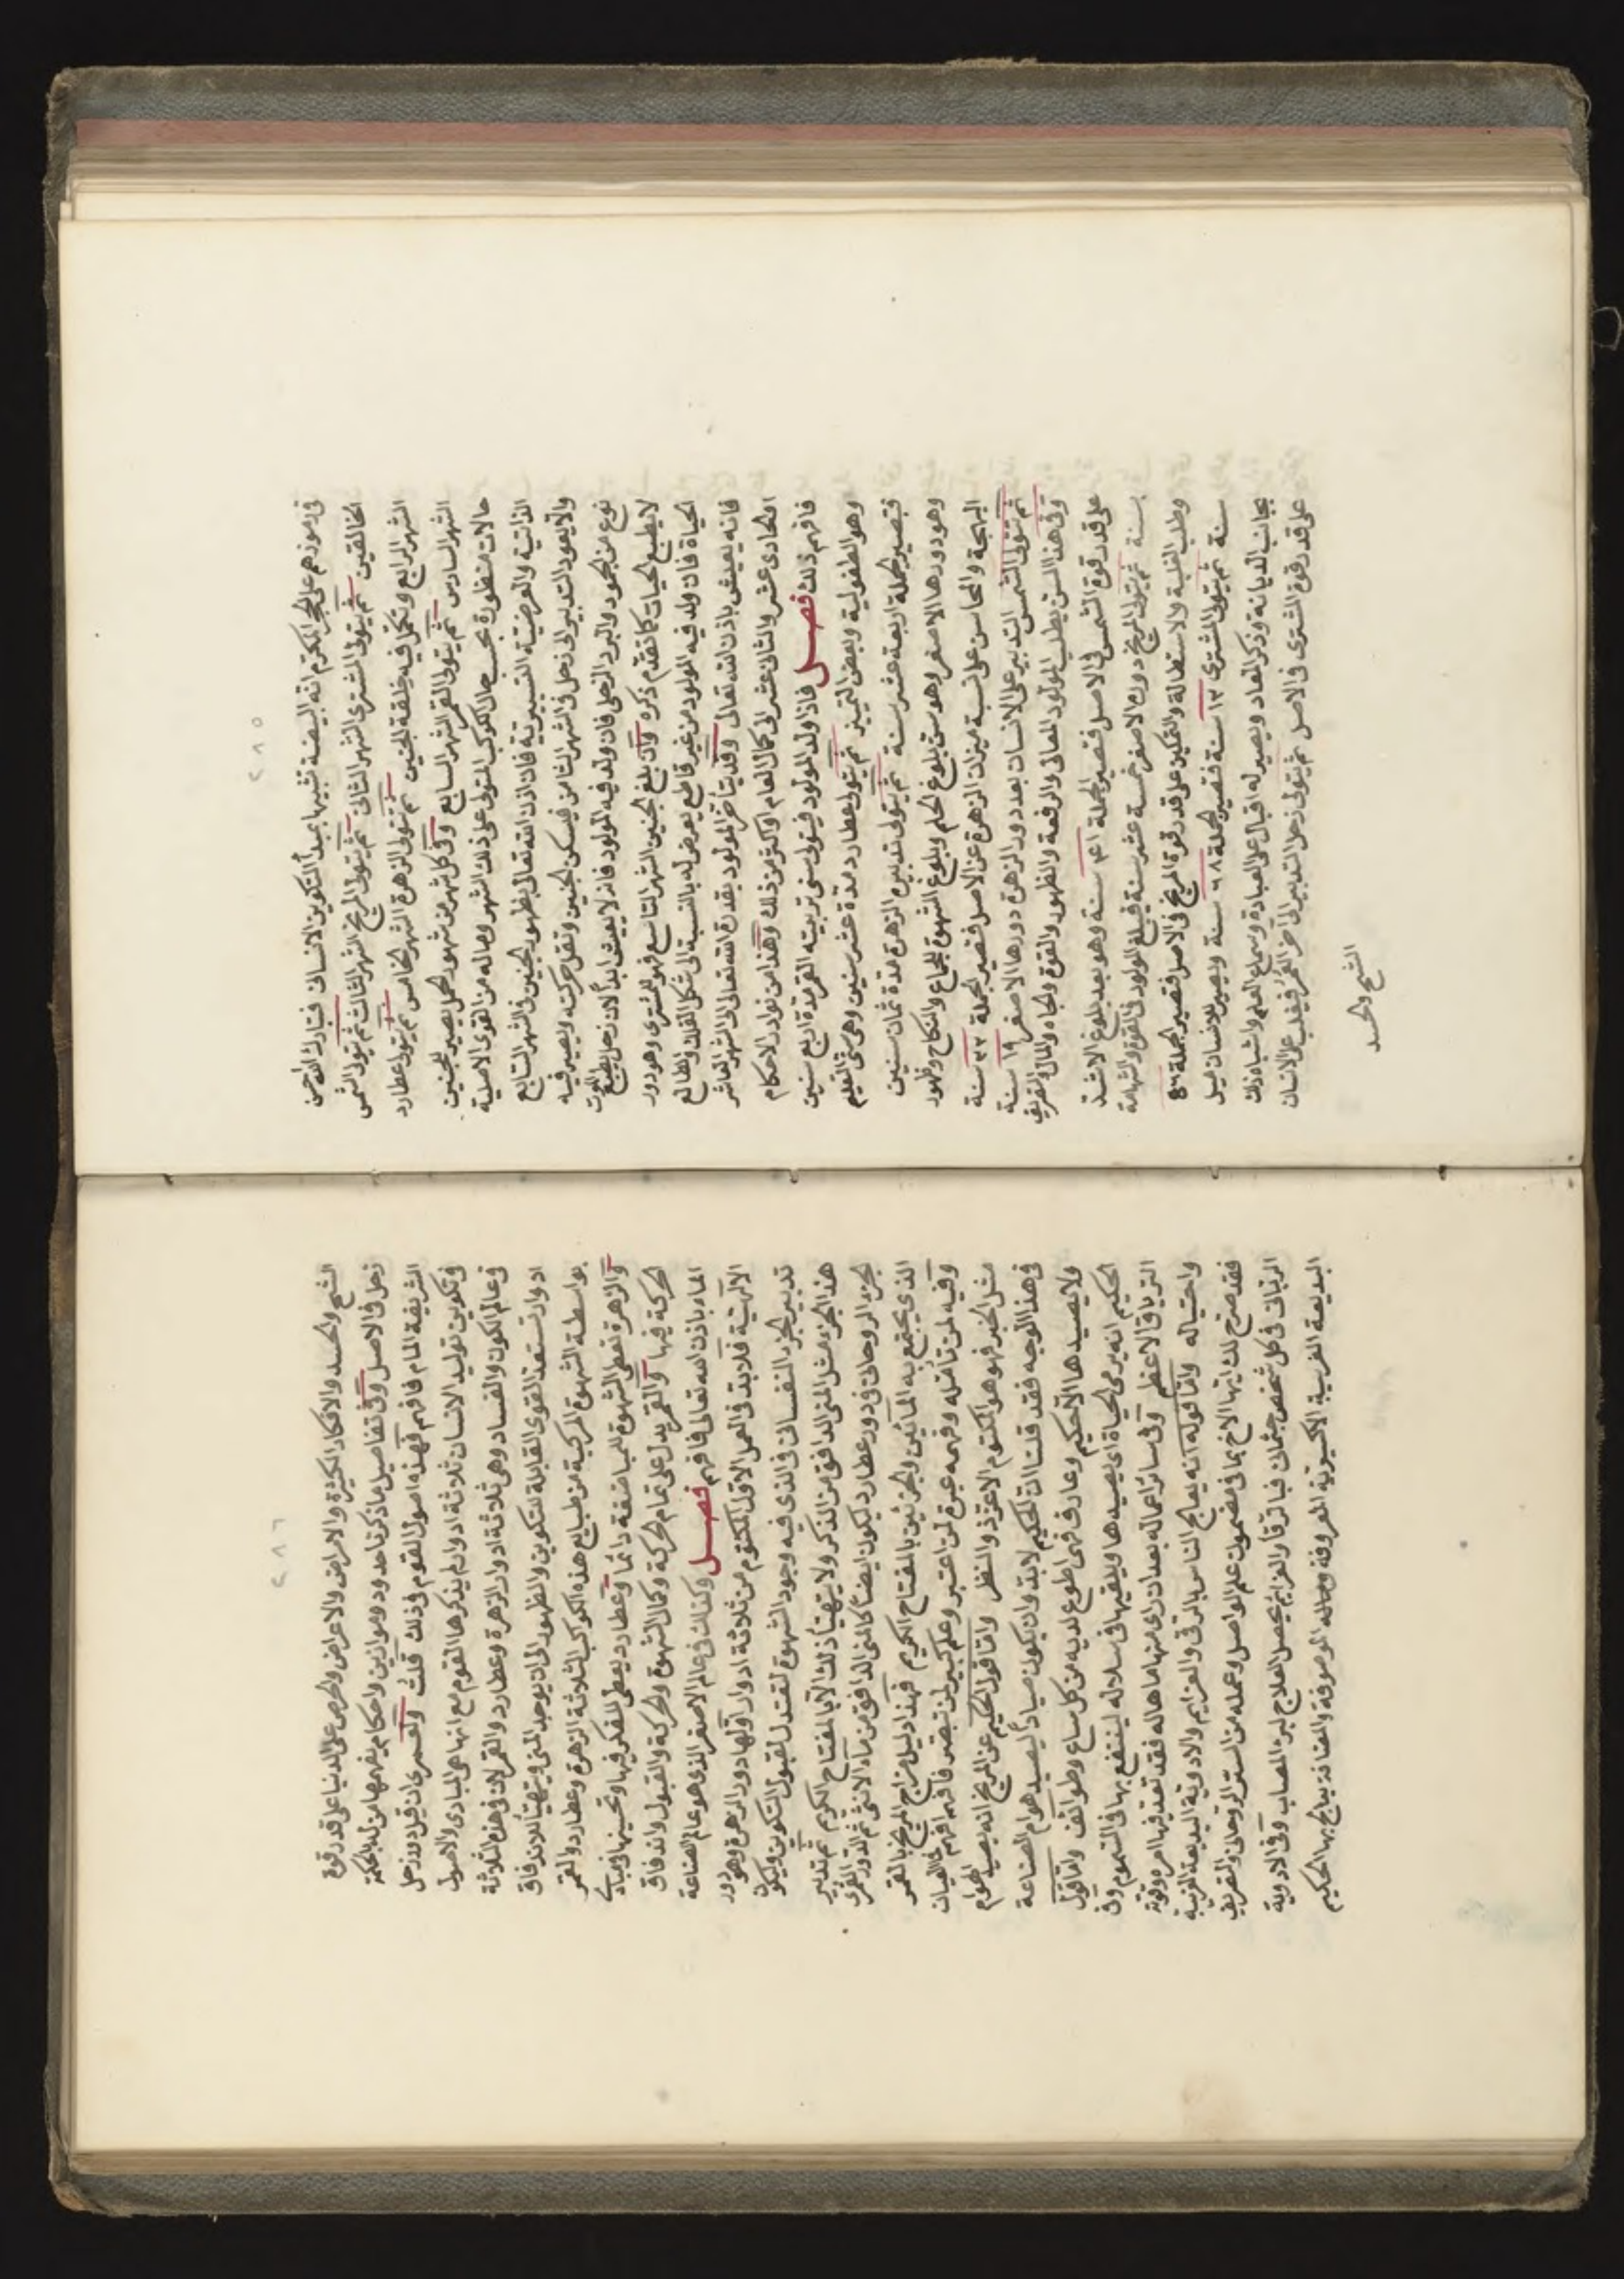 ٢٨٥
في رموزهم على الحجر المكرم انه البيضة تشبيها بمبدأ التكوين الانساني فتبارك الله احسن
الخالقين ثم يتولى المشتري الشهر الثاني ثم يتولى المريخ الشهر الثالث ثم يتولى الشمس
الشهر الرابع وتكمل فيه خلقة الجنين ثم يتولى الزهرة الشهر الخامس ثم يتولى عطارد
الشهر السادس ثم يتولى القمر الشهر السابع وفي كل شهر من شهور الحمل يصير للجنين
حالات منظورة بحسب حال الكوكب المتولى على ذلك الشهر وماله من القوى الاصلية
الذاتية والعرضية التسييرتية فان اذن الله تعالى بظهور الجنين في الشهر السابع
والا يعود التدبير الى زحل في الشهر الثامن فيسكن الجنين وتقل حركته ويصير فيه
نوع من الجمود والبرد الزحلي فان ولد فيه المولود فانه لا يعيش ابدا لان زحل بطبع الموت
لا بطبع الحيات كما تقدم ذكره وان بلغ الجنين الشهر التاسع فهو للمشتري وهو دور
الحياة فان ولد فيه المولود من غير قاطع يعرض له بالنسبة الى شكل الفلك والطالع
فانه يعيش باذن الله تعالى وقد يتأخر المولود بقدرة الله تعالى الى الشهر العاشر
الحادى عشر والثاني عشر الى كمال العام او اكثر من ذلك وهذا من نوادر الاحكام
فافهم ذلك فصل فاذا ولد المولود فيتولى سنى تربيته القمر مدة اربع سنين
وهو الطفولية وبعض التمييز ثم يتولى عطارد مدة عشر سنين وهي سنى التعليم
فتصير الجملة اربعة عشر سنة ثم يتولى تدبيره الزهرة مدة ثمان سنين
وهو دورها الاصغر وهو سن بلوغ الحلم وبلوغ الشهوة للجماع والنكاح وظهور
البهجة والمحاسن على نسبة ميزان الزهرة عن الاصل فتصير الجملة ٢٢ سنة
ثم يتولى الشمس التدبير على الانسان بعد دور الزهرة دورها الاصغر ١٩ سنة
وفي هذا السن يطلب المولود المعالى والرفعة والظهور والقوة والجاه والمال والتصريف
على قدر قوة الشمس في الاصل فتصير الجملة ٤١ سنة وهو بعد بلوغ الاشد
بسنة ثم يتولى المريخ دوره الاصغر خمسة عشر سنة فيبلغ المولود في القوة والشهامة
وطلب الغلبة والاستطالة والتمكين على قدر قوة المريخ في الاصل فتصير الجملة ٥٦
سنة ثم يتولى المشتري ١٢ سنة فتصير الجملة ٦٨ سنة ويصير للانسان ميل
بجانب الديانة وذكر المعاد ويصير له اقبال على العبادة وسماع العلم واشباه ذلك
على قدر قوة المشتري في الاصل ثم يتولى زحل التدبير الى آخر العمر فيغلب على الانسان
الشح والحسد
٢٨٦
الشح والحسد والافكار الكثيرة والامراض والاعراض والحرص على الدنيا على قدر قوة
زحل في الاصل وفي تفاصيل ما ذكرنا حدود وموازين واحكام يفهمها من له بالحكمة
الشريفة المام فافهم فهذه اصول القوم في ذلك قلت ولعمرى ان قبل دور زحل
في تكوين توليد الانسان ثلاثة ادوار لم يذكرها القوم مع انها هي المبادى والاصول
في عالم الكون والفساد وهي ثلاثة ادوار الزهرة وعطارد والقمر لان في هذه الثلاثة
ادوار تستعد القوى القابلة للتكوين والظهور الى ان يوجد المنى ويتهيأ للاندفاق
بواسطة الشهوة المركبة من طبايع هذه الكواكب الثلاثة الزهرة وعطارد والقمر
والزهرة تعطى الشهوة للمباضعة دائما وعطارد يعطى للفكر فيها وتحسينها في مبادى
الحركة فيها والقمر يدل على تمام الحركة وكمال الشهوة والحركة والقبول واندفاق
الماء باذن الله تعالى فافهم فصل وكذلك في عالم الاصغر الذي هو عالم الصناعة
الالهية فلا بد في العمل الاول المكتوم من ثلاثة ادوار اولها دور الزهرة وهو دور
تدبير الجزء النفساني الذي فيه وجود الشهوة لتعتدل لقبول التكوين ويكون
هذا الجزء مثل المنى الدافق من الذكر ولا يتهيأ ذلك الا بالمفتاح الكريم ثم تدبير
الجزء الروحاني في دور عطارد ليكون ايضا كالمنى الدافق من ماء الانثى ثم الدور القمرى
الذي يجتمع به المائين والجزئين بالمفتاح الكريم فهذا دليل مزاج المريخ بالقمر
وفيه لمن تأمله وفهمه عبرة لمن اعتبر وعلم كبير لمن تبصر فافهم افهم العيان
مثل الخبر فهو هو المكتوم الاعز والنظر واما قول الحكيم عن المريخ انه يصيد الهوام
في هذا الوجه فقد قلنا ان الحكيم لا بد وان يكون صيادا ليصيد هوام الصناعة
ولا يصيدها الا حكيم وعارف فهى اطوع لديه من كل ساع وطوائف واما قول
الحكيم انه يرمى الحياة اى يصيدها ويلقيها في سلاله لينتفع بها في السموم وفي
الترياق الاعظم وفي سائر اعماله بعد ان رى منها ما هاله فقد نفذ فيها امره وقوته
واحتياله واما قوله انه يعالج الناس بالرقى والعزايم والادوية البديعة الغريبة
فقد صرح لك ايها الاخ بما في مضمون علم الواصل وعمله من السر الروحاني والتصريف
الرباني في كل شخص جثمان فبالرقا والعزايم يحصل العلاج لبرء المصاب وفي الادوية
البديعة الغريبة الاكسيرية المعروفة وحاله الموصوفة والمنافذ يبالج بها الحكيم